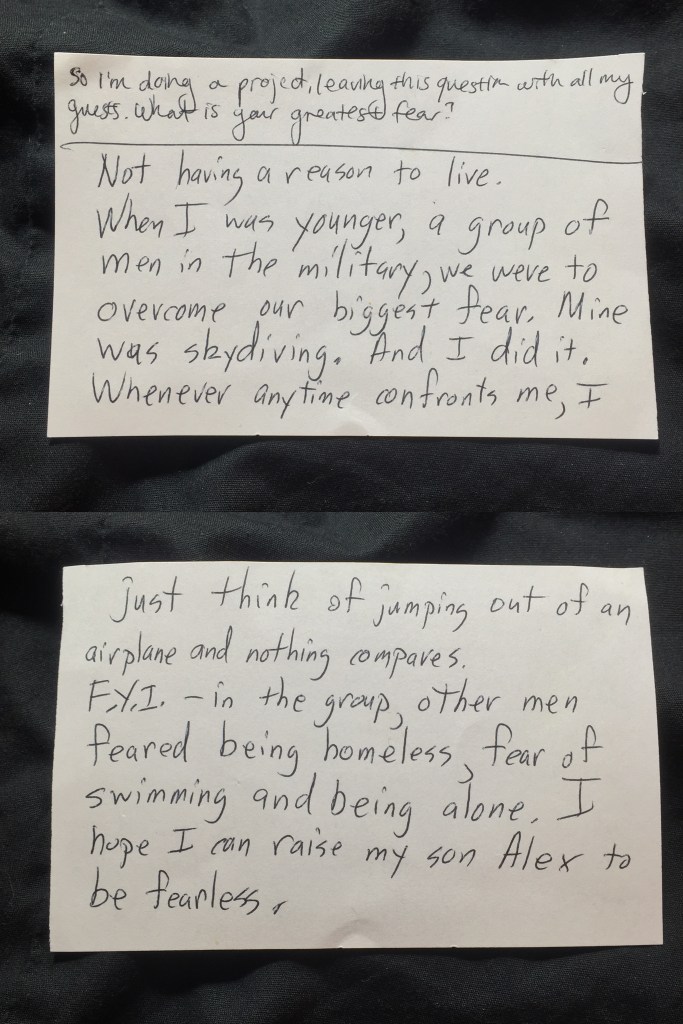 So I'm doing a project, leaving this question with all my
guests. What is your greatest fear?
Not having a reason to live.
When I was younger, a group of
men in the military, we were to
overcome our biggest fear. Mine
was skydiving. And I did it.
Whenever anytime confronts me, I
just think of jumping out of an
airplane and nothing compares.
F.Y.I. – in the group, other men
feared being homeless, fear of
swimming and being alone. I
hope I can raise my son Alex to
be fearless.